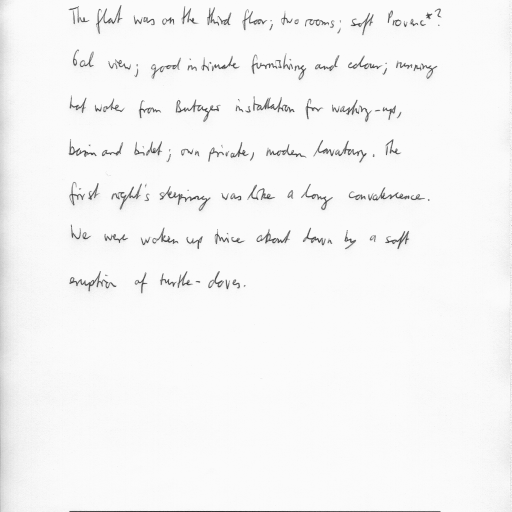 The flat was on the third floor; two rooms; soft Provenc*?
Gal view; good intimate furnishing and colour; running
hot water from Butagas installation for washing-up,
basin and bidet; own private, modern lavatory. The
first night's sleeping was like a long convalescence.
We were woken up twice about dawn by a soft
eruption of turtle-doves.